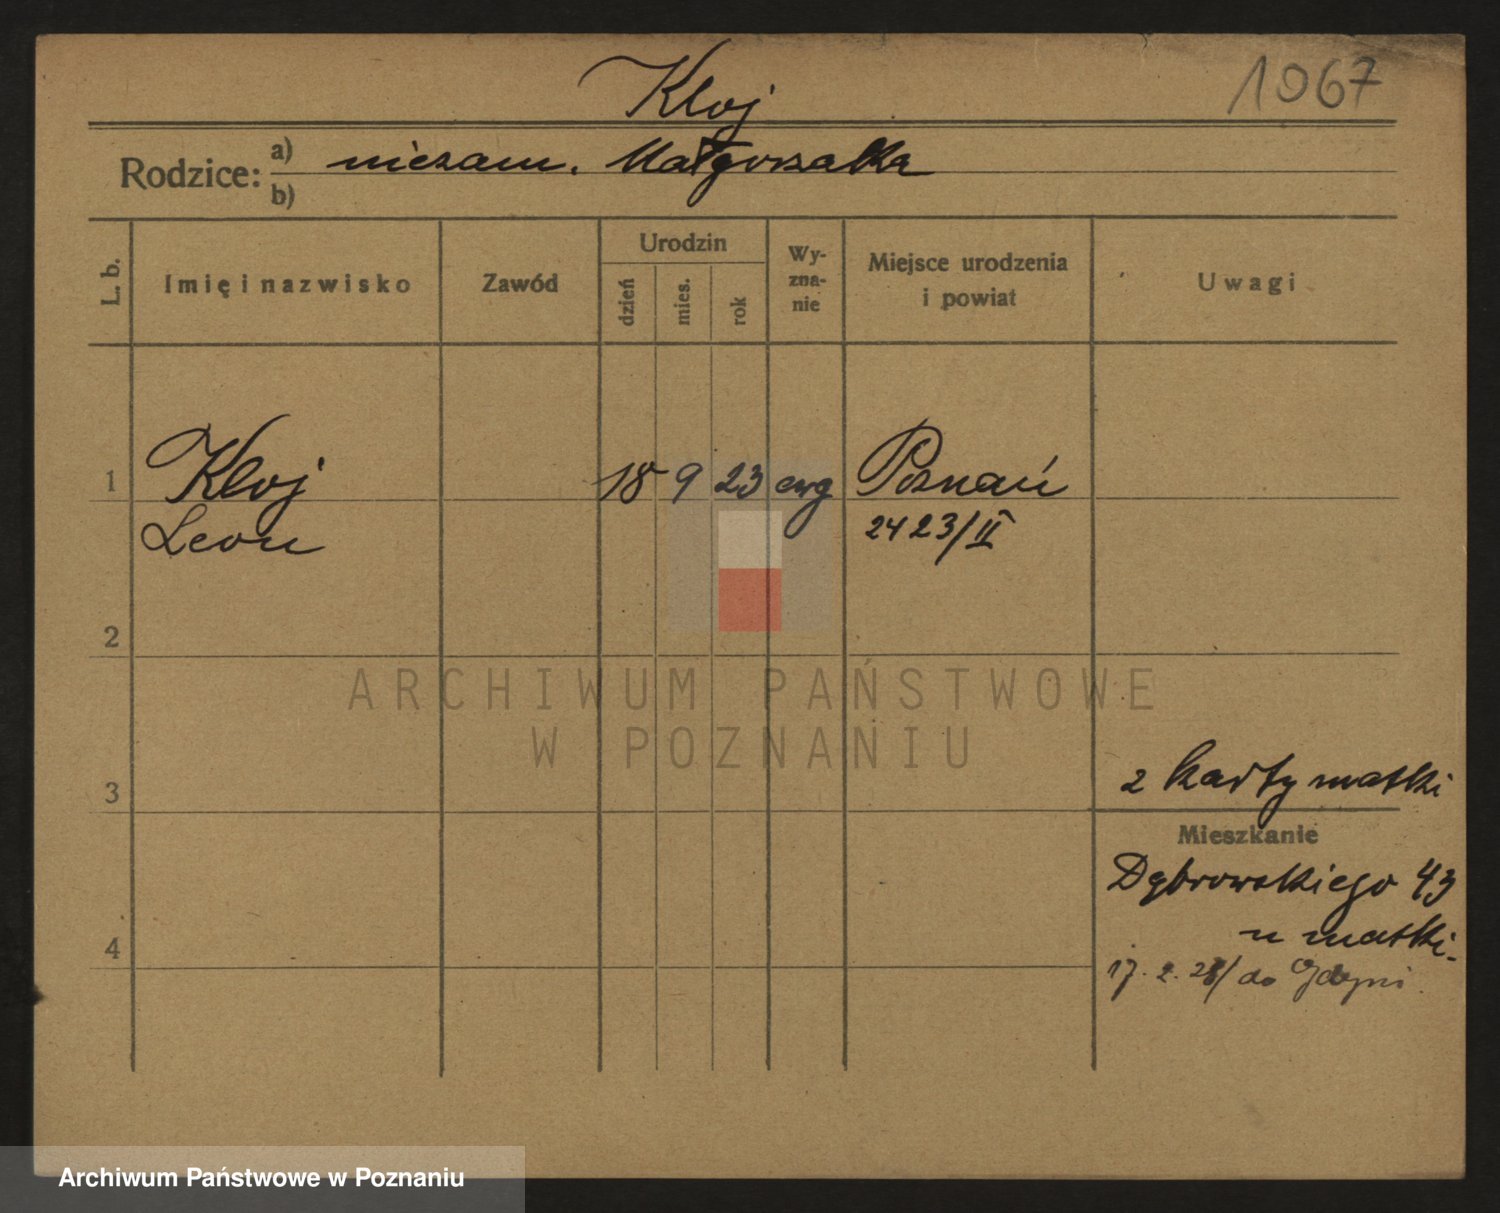 Kloj
1967
Rodzice: a) niezam. Małgorzatka
b)
L. b.
Imię i nazwisko
Zawód
Urodzin
dzień
mies.
rok
Wy-
zna-
nie
Miejsce urodzenia
i powiat
Uwagi
1 Kloj 18 9 23 ewg Poznań
Leon 2423/II
2
ARCHIWUM PAŃSTWOWE
W POZNANIU
3 2 karty matki
Mieszkanie
Dąbrowskiego 43
u matki.
4
17. 2. 28/ do Gdyni.
Archiwum Państwowe w Poznaniu